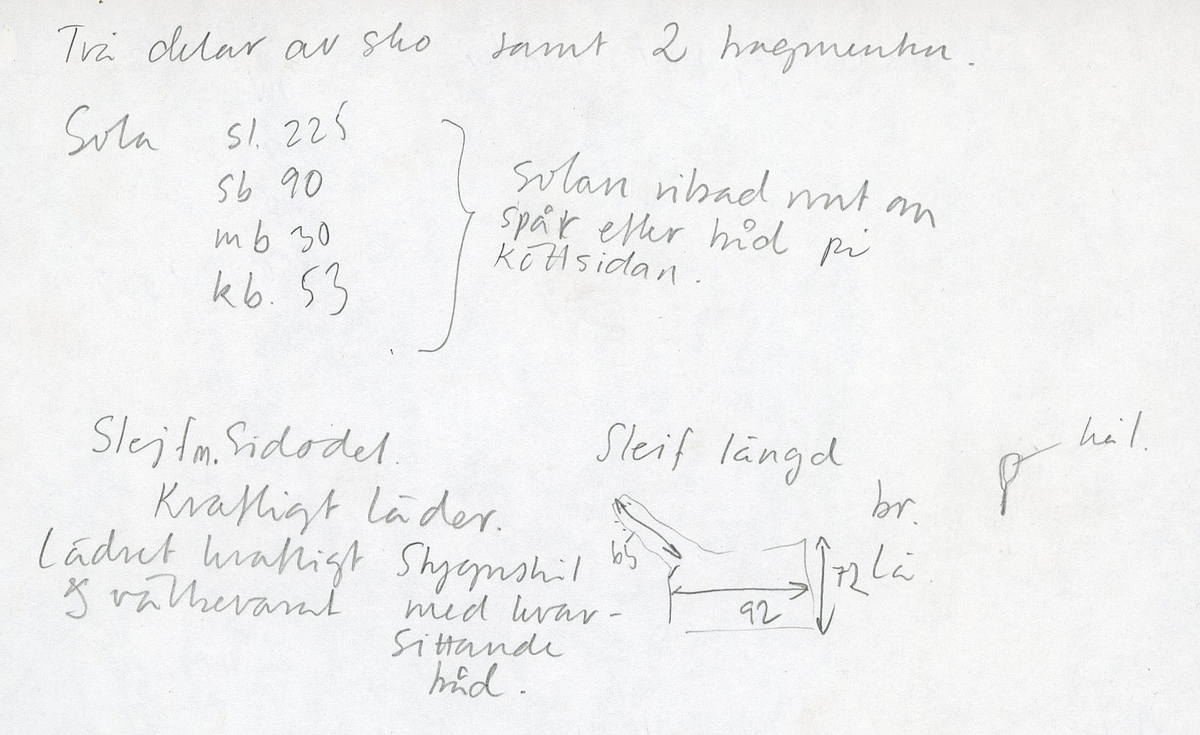 Två delar av sko samt 2 fragment
Sula sl. 225
sb 90
mb 30
kb. 53
Sulan
spår efter tråd på
köttsidan.
Slejf m. Sidodel.
Kraftigt läder.
Lädret kraftigt
& välbevarat
Stygnshål
med kvar-
sittande
tråd.
Slejf längd
br.
Lä
65
92
72
hål.